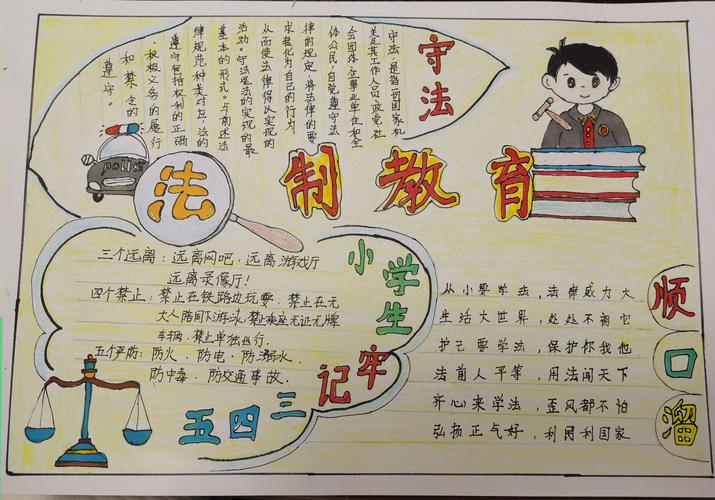 守法
守法,是指一切国家机
关及其工作人员、政党、社
会团体、企事业单位和全
体公民,自觉遵守法
律的规定,将法律的要
求转化为自己的行为,
从而使法律得以实现的
活动。守法是法的实现的最
基本的形式。与前述法
律规范种类对应,法的
遵守包括权利的正确
极义务的履行
和禁令的
遵守。
police
法制教育
小学生牢记三四五
三个远离:远离网吧、远离游戏厅
远离录像厅!
四个禁止:禁止在铁路边玩耍;禁止在无
大人陪同下游泳,禁乘座无证无牌
车辆,禁止单独出行.
五个严防:防火、防电、防溺水、
防中毒、防交通事故.
顺口溜
从小要学法,法律威力大
生活大世界,处处不离它
护己要学法,保护你我他
法前人平等,用法闯天下
齐心来学法,歪风都不怕
弘扬正气好,利民利国家